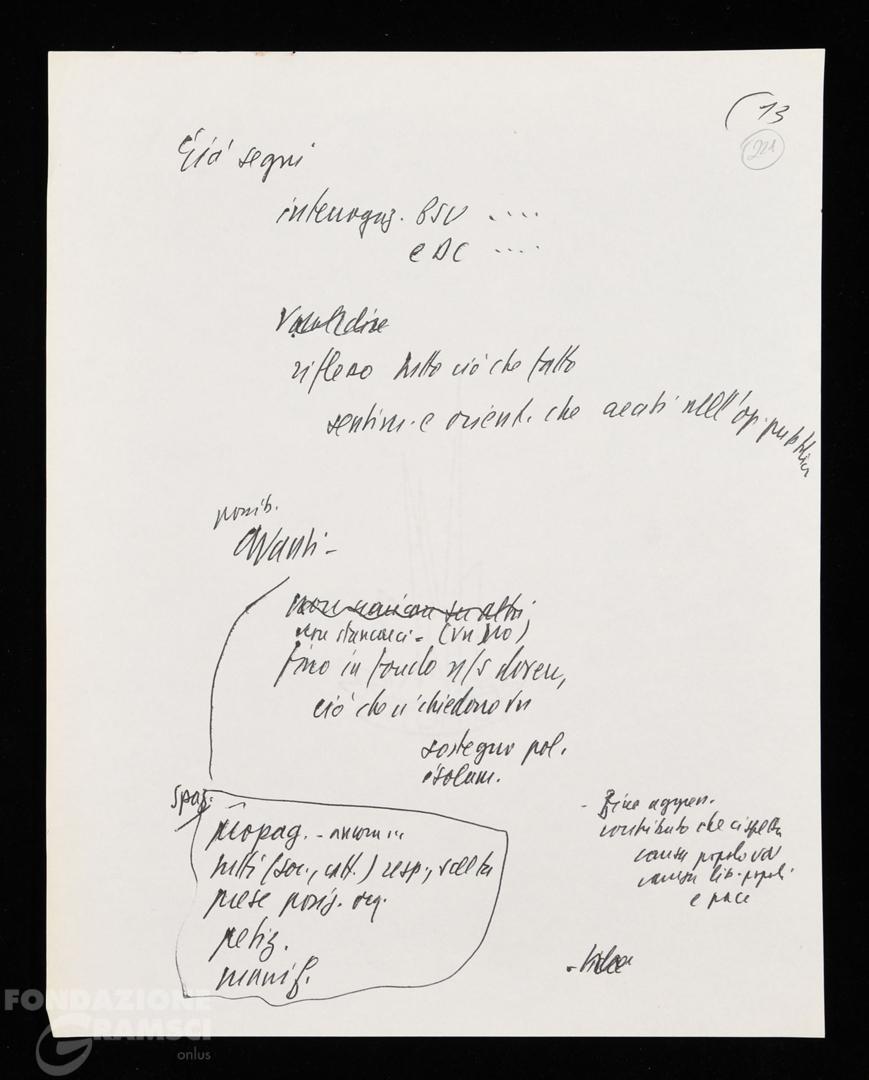 (13
221
Già segni
interrogaz. PSU ....
e DC ....
Vuol dire
riflesso tutto ciò che fatto
sentim. e orient. che creati nell'op. pubblica
possib.
Avanti -
non stancarci - (VN no)
fino in fondo n/s dovere,
ciò che ci chiedono VN
sostegno pol.
isolam.
spaz.
propag. - ancora ...
tutti (soc., catt.) resp., scelta
prese posiz. org.
petiz.
manif.
- Fine aggress.
contributo che ci spetta
causa popolo VN
causa lib. popoli
e pace
FONDAZIONE
GRAMSCI
onlus